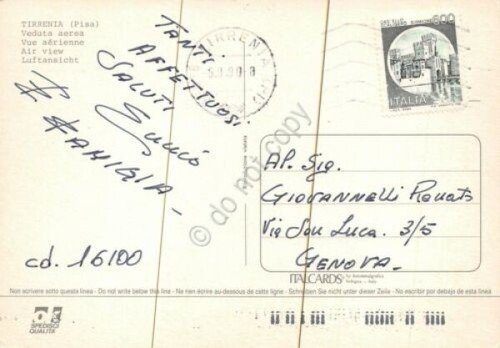 TIRRENIA (Pisa)
Veduta aerea
Vue aérienne
Air view
Luftansicht
TANTI
AFFETTUOSI
SALUTI
FAMIGLIA
cd. 16100
TIRRENIA
600
ITALIA
AP. Sig.
GIOVANNELLI Renato
Via San Luca. 3/5
GENOVA
ITALCARDS
do not copy
Non scrivere sotto questa linea - Do not write below this line - Ne rien écrire au-dessous de cette ligne - Schreiben Sie nicht unter dieser Zeile - No escribir por debajo de esta linea
SPEDISCI
QUALITÀ